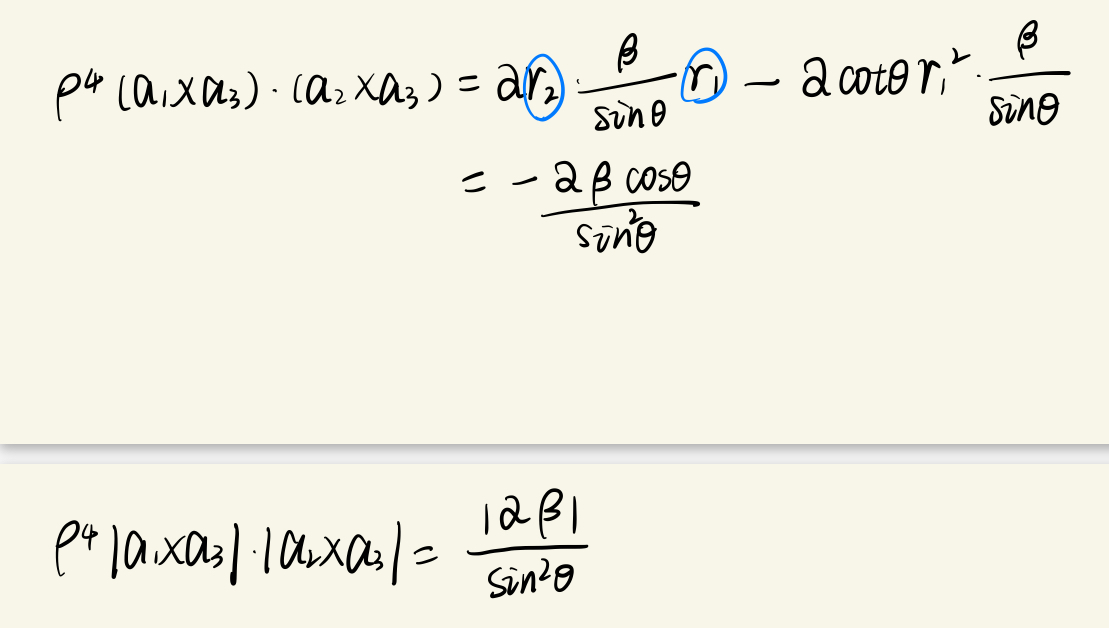 ρ⁴ (a₁×a₃) · (a₂×a₃) = αr₂ · β/sinθ r₁ − α cotθ r₁² · β/sinθ
= − αβ cosθ/sin²θ
ρ⁴ |a₁×a₃| · |a₂×a₃| = |αβ|/sin²θ